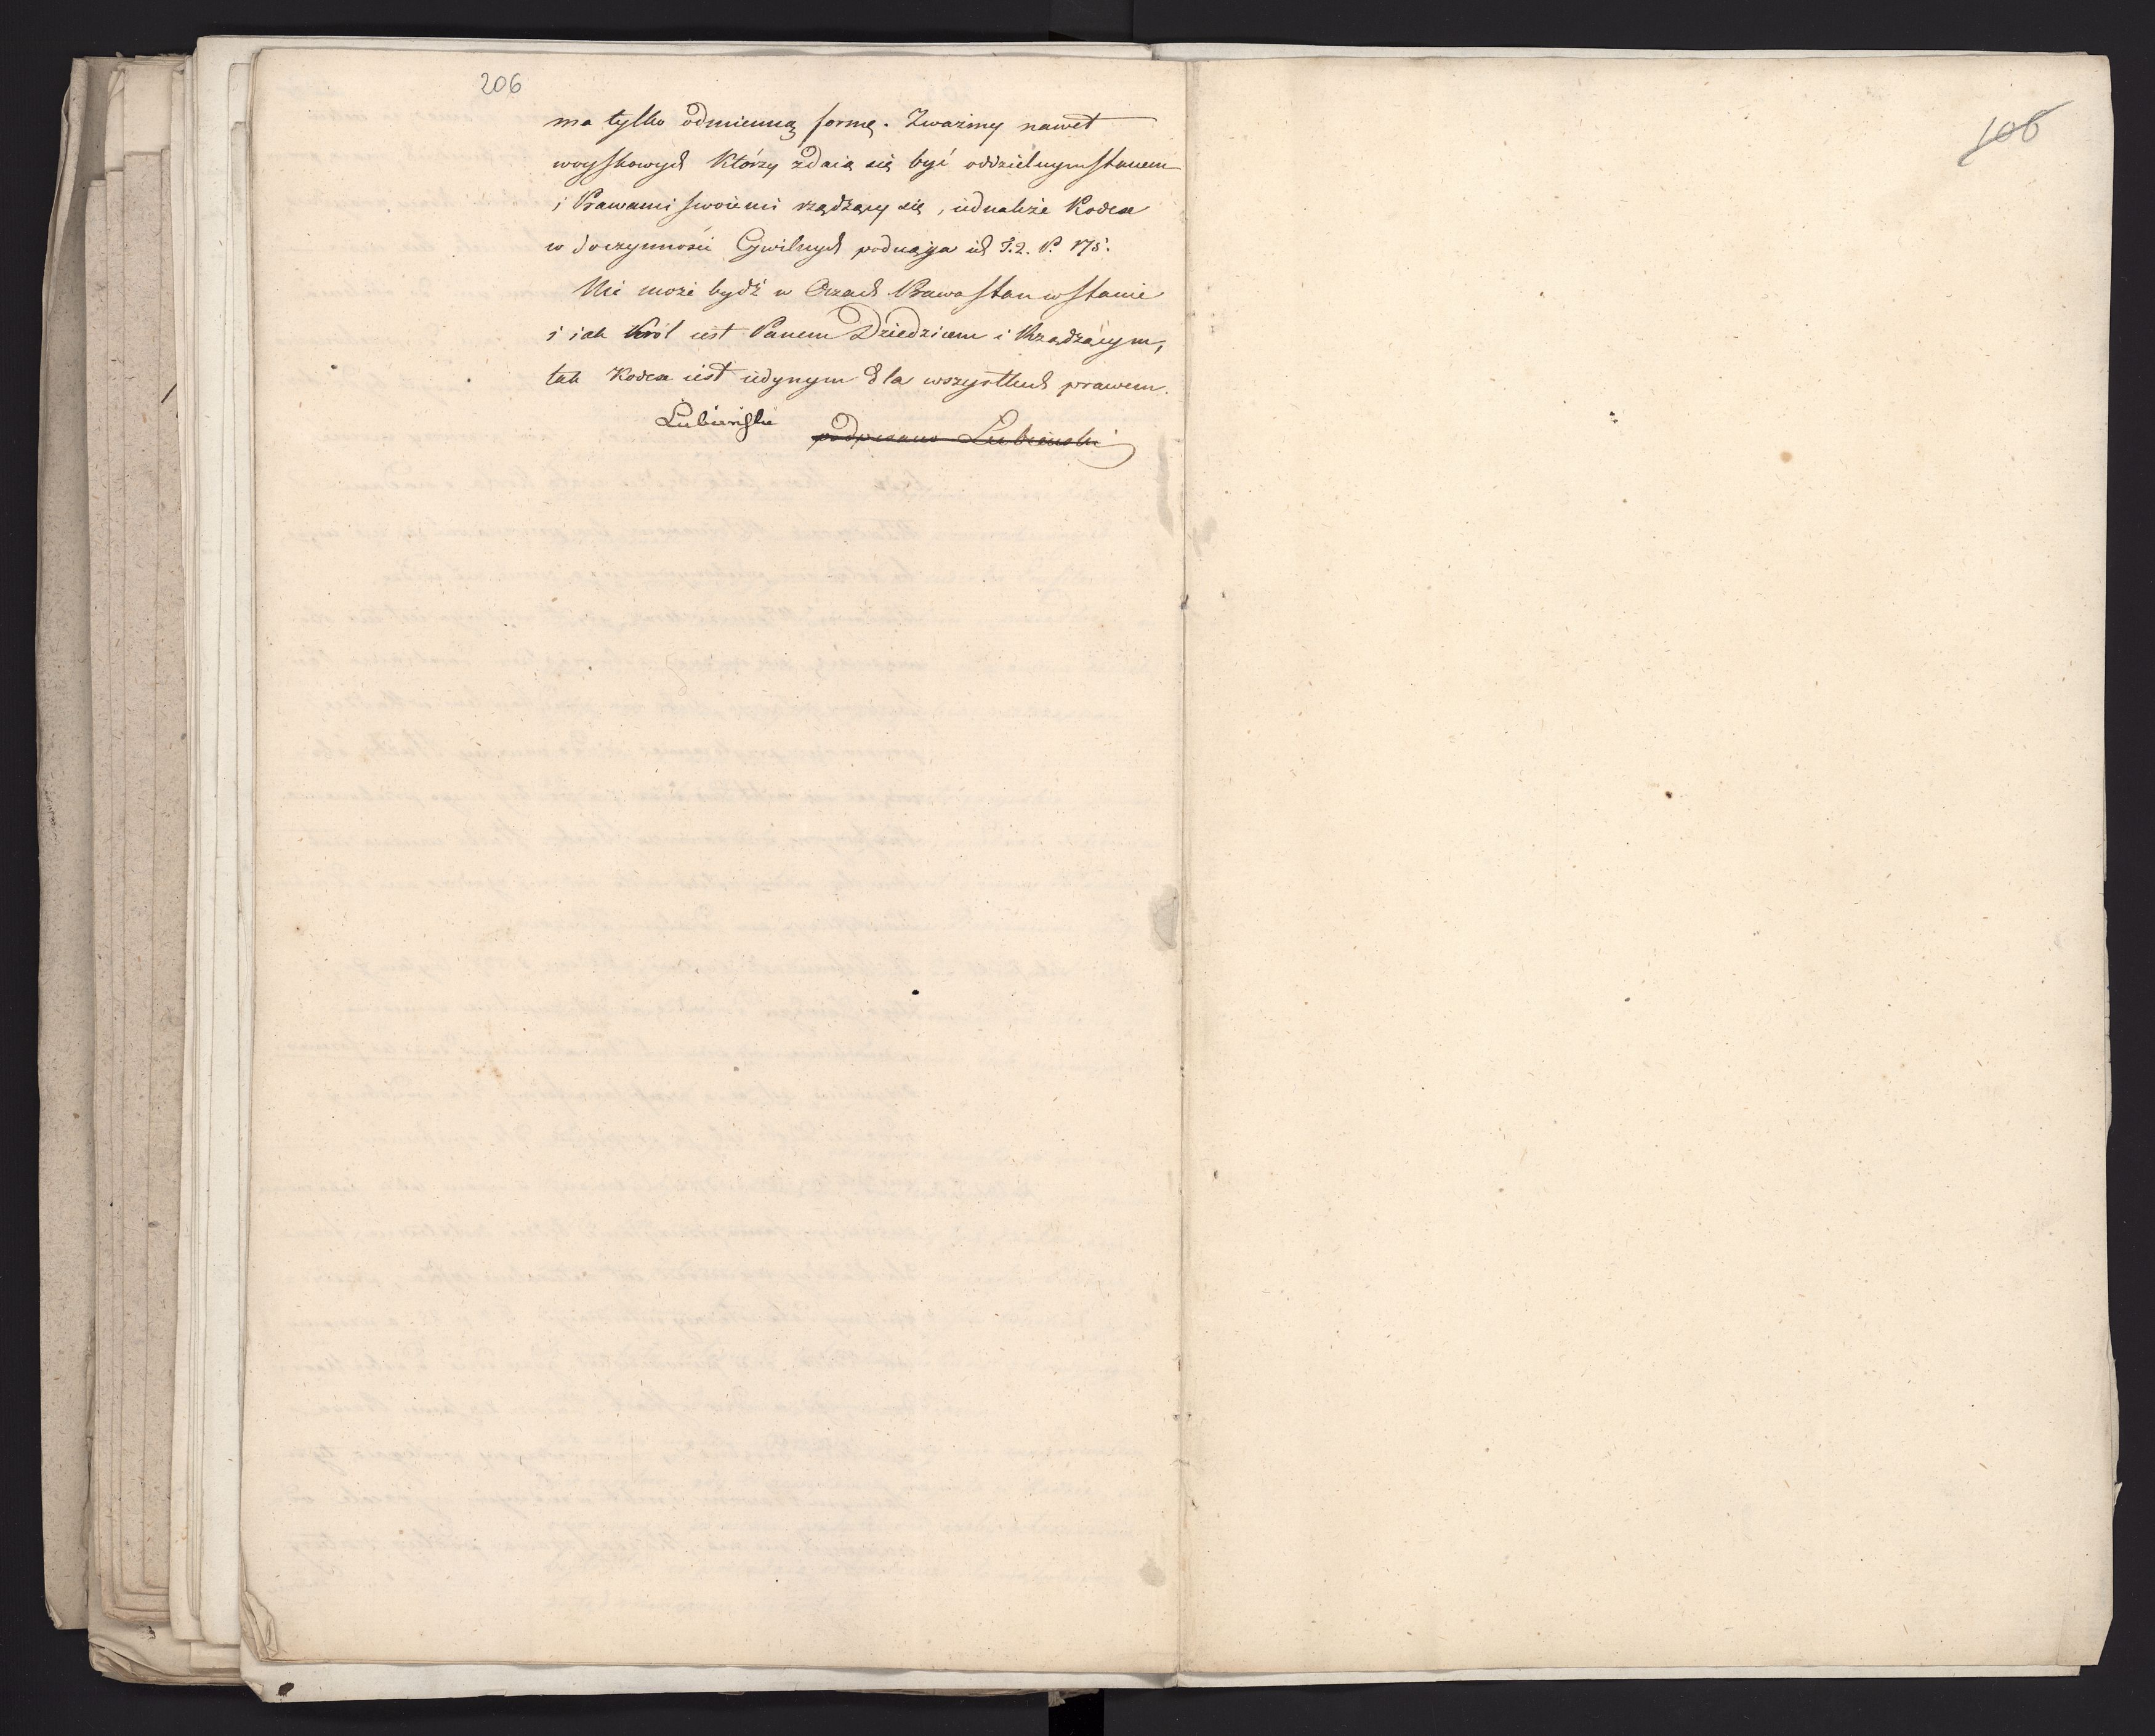 206
ma tylko odmienną formę. Zważmy nawet
woyskowych którzy zdaią się być oddzielnym stanem
i Prawami swoiemi rządzący się, iednakże Kodex
w doczynności Cywilnych podciąga ich T. 2. P. 175.
Nie może bydź w Oczach Prawa stan w stanie
i iak Król iest Panem Dziedzicem i Rządzącym,
tak Kodex iest iedynym dla wszystkich prawem.
Łubieński podpisano Łubieński
106